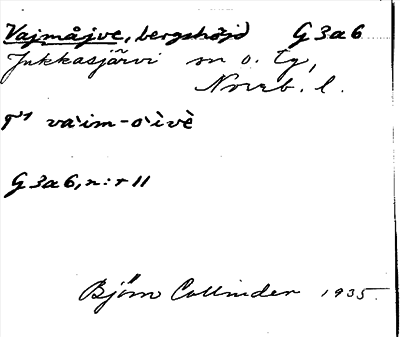 Vajmåjve, bergshöjd G3a6
Jukkasjärvi sn o. tg,
Norrb. l.
va'im-o'ivè
G3a6, n:r 11
Björn Collinder 1935.